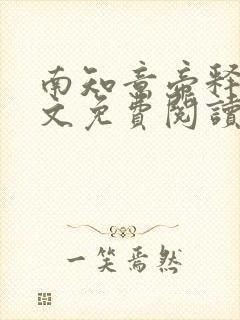 南知意帝释
文免費閱讀
一笑焉然